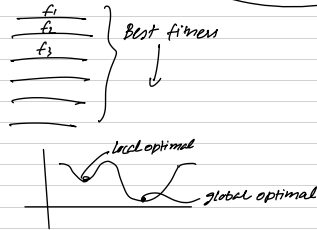 f1
f2
f3
Best fitness
local optimal
global optimal